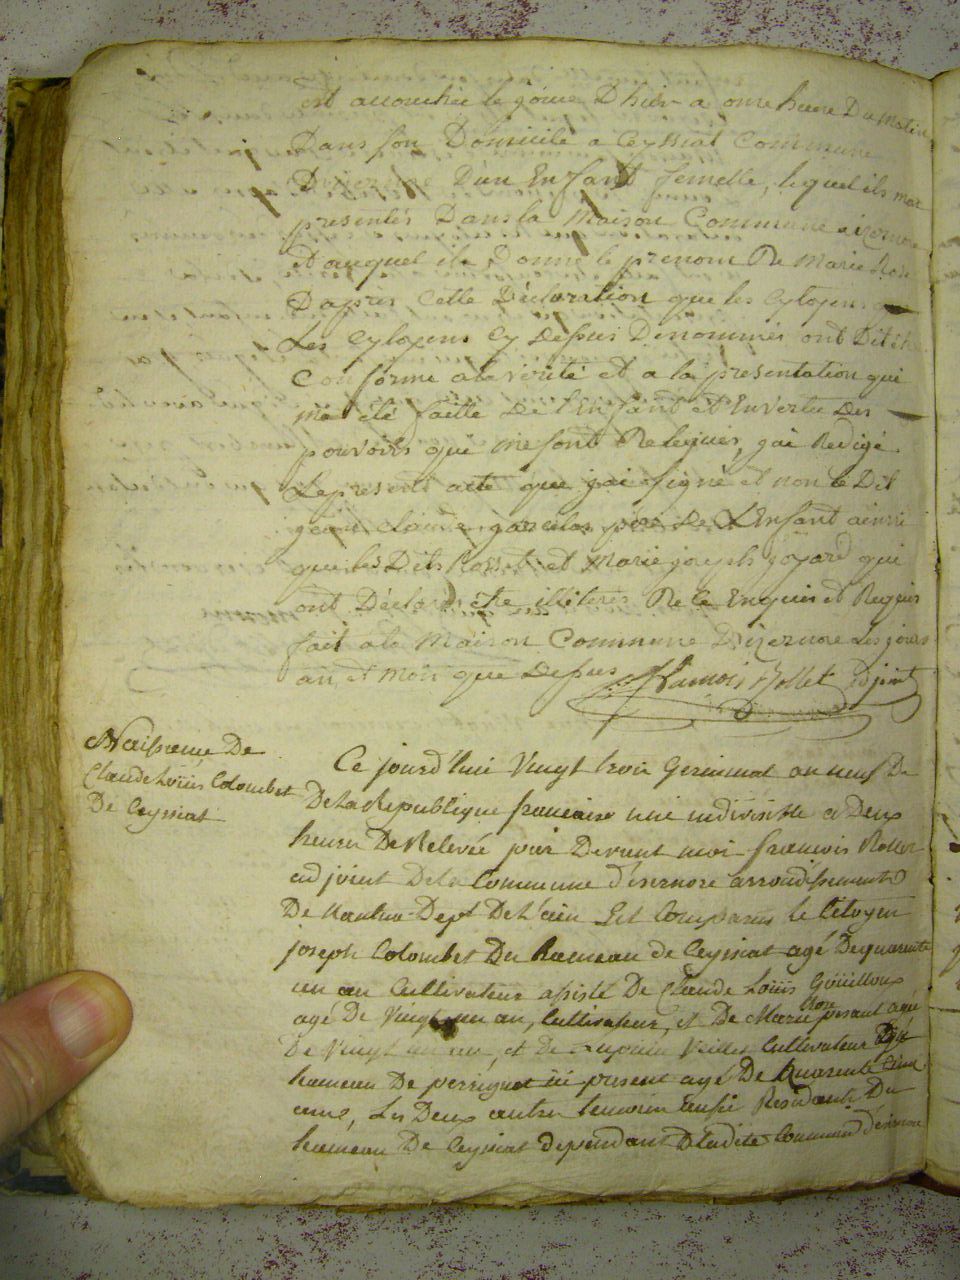 est accouchée le jour D'hier a onze heure Du Matin
Dans son Domicile a Ceyssiat Commune
D'un Enfant femelle, lequel ils mon
presentés Dans la Maison Commune
et auquel ils Donne le prenom De Marie Rose
Daprès Cette Déclaration que les Cytoyens
Les Cytoyens Cy Depuis Denommés ont Dit
Conforme a la vérité et a la présentation qui
ma été faitte De l'Enfant et En vertu Des
pouvoirs que me sont Delegués, jai Redigé
Le present acte que jai signé et non le Dit
jean Claude père De L'Enfant ainsi
que les Dits Rosset et Marie joseph joyard qui
ont Déclaré être illiterés De ce Enquis et Requis
fait a la Maison Commune D'izernore Les jours
an et Mois que Depus francois Rollet adjoint
Naissance De
Claude Loüis Colombet
De Ceyssiat
Ce jourd'hui Vingt trois Germinal an neuf De
De la Republique francaise une indivisible a Deux
heures De Relevée pardevant moi francois Rollet
adjoint De la Commune d'isernore arrondissement
De Nantua Dept De L'ain Est Comparus le Citoyen
joseph Colombet Du hameau de Ceyssiat agé De quarente
un an Cultivateur assisté De Claude Loüis Goüilloux
agé De Vingt un an, Cultivateur, et De Marie Rose agée
De Vingt un an, et De Cultivateur
hameau De perrignat ici present agé De Quarente Cinq
ans, Les Deux autres temoin aussi Residants Du
hameau De Ceyssiat dependant De ladite Commune d'isernore